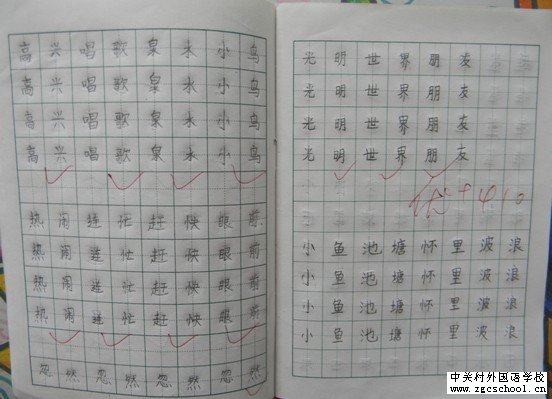 高兴唱歌泉水小鸟
高兴唱歌泉水小鸟
高兴唱歌泉水小鸟
高兴唱歌泉水小鸟
热闹连忙赶快眼前
热闹连忙赶快眼前
热闹连忙赶快眼前
热闹连忙赶快眼前
忽然忽然忽然忽然
光明世界朋友
光明世界朋友
光明世界朋友
光明世界朋友
优+
小鱼池塘怀里波浪
小鱼池塘怀里波浪
小鱼池塘怀里波浪
小鱼池塘怀里波浪
中关村外国语学校
www.zgcschool.cn